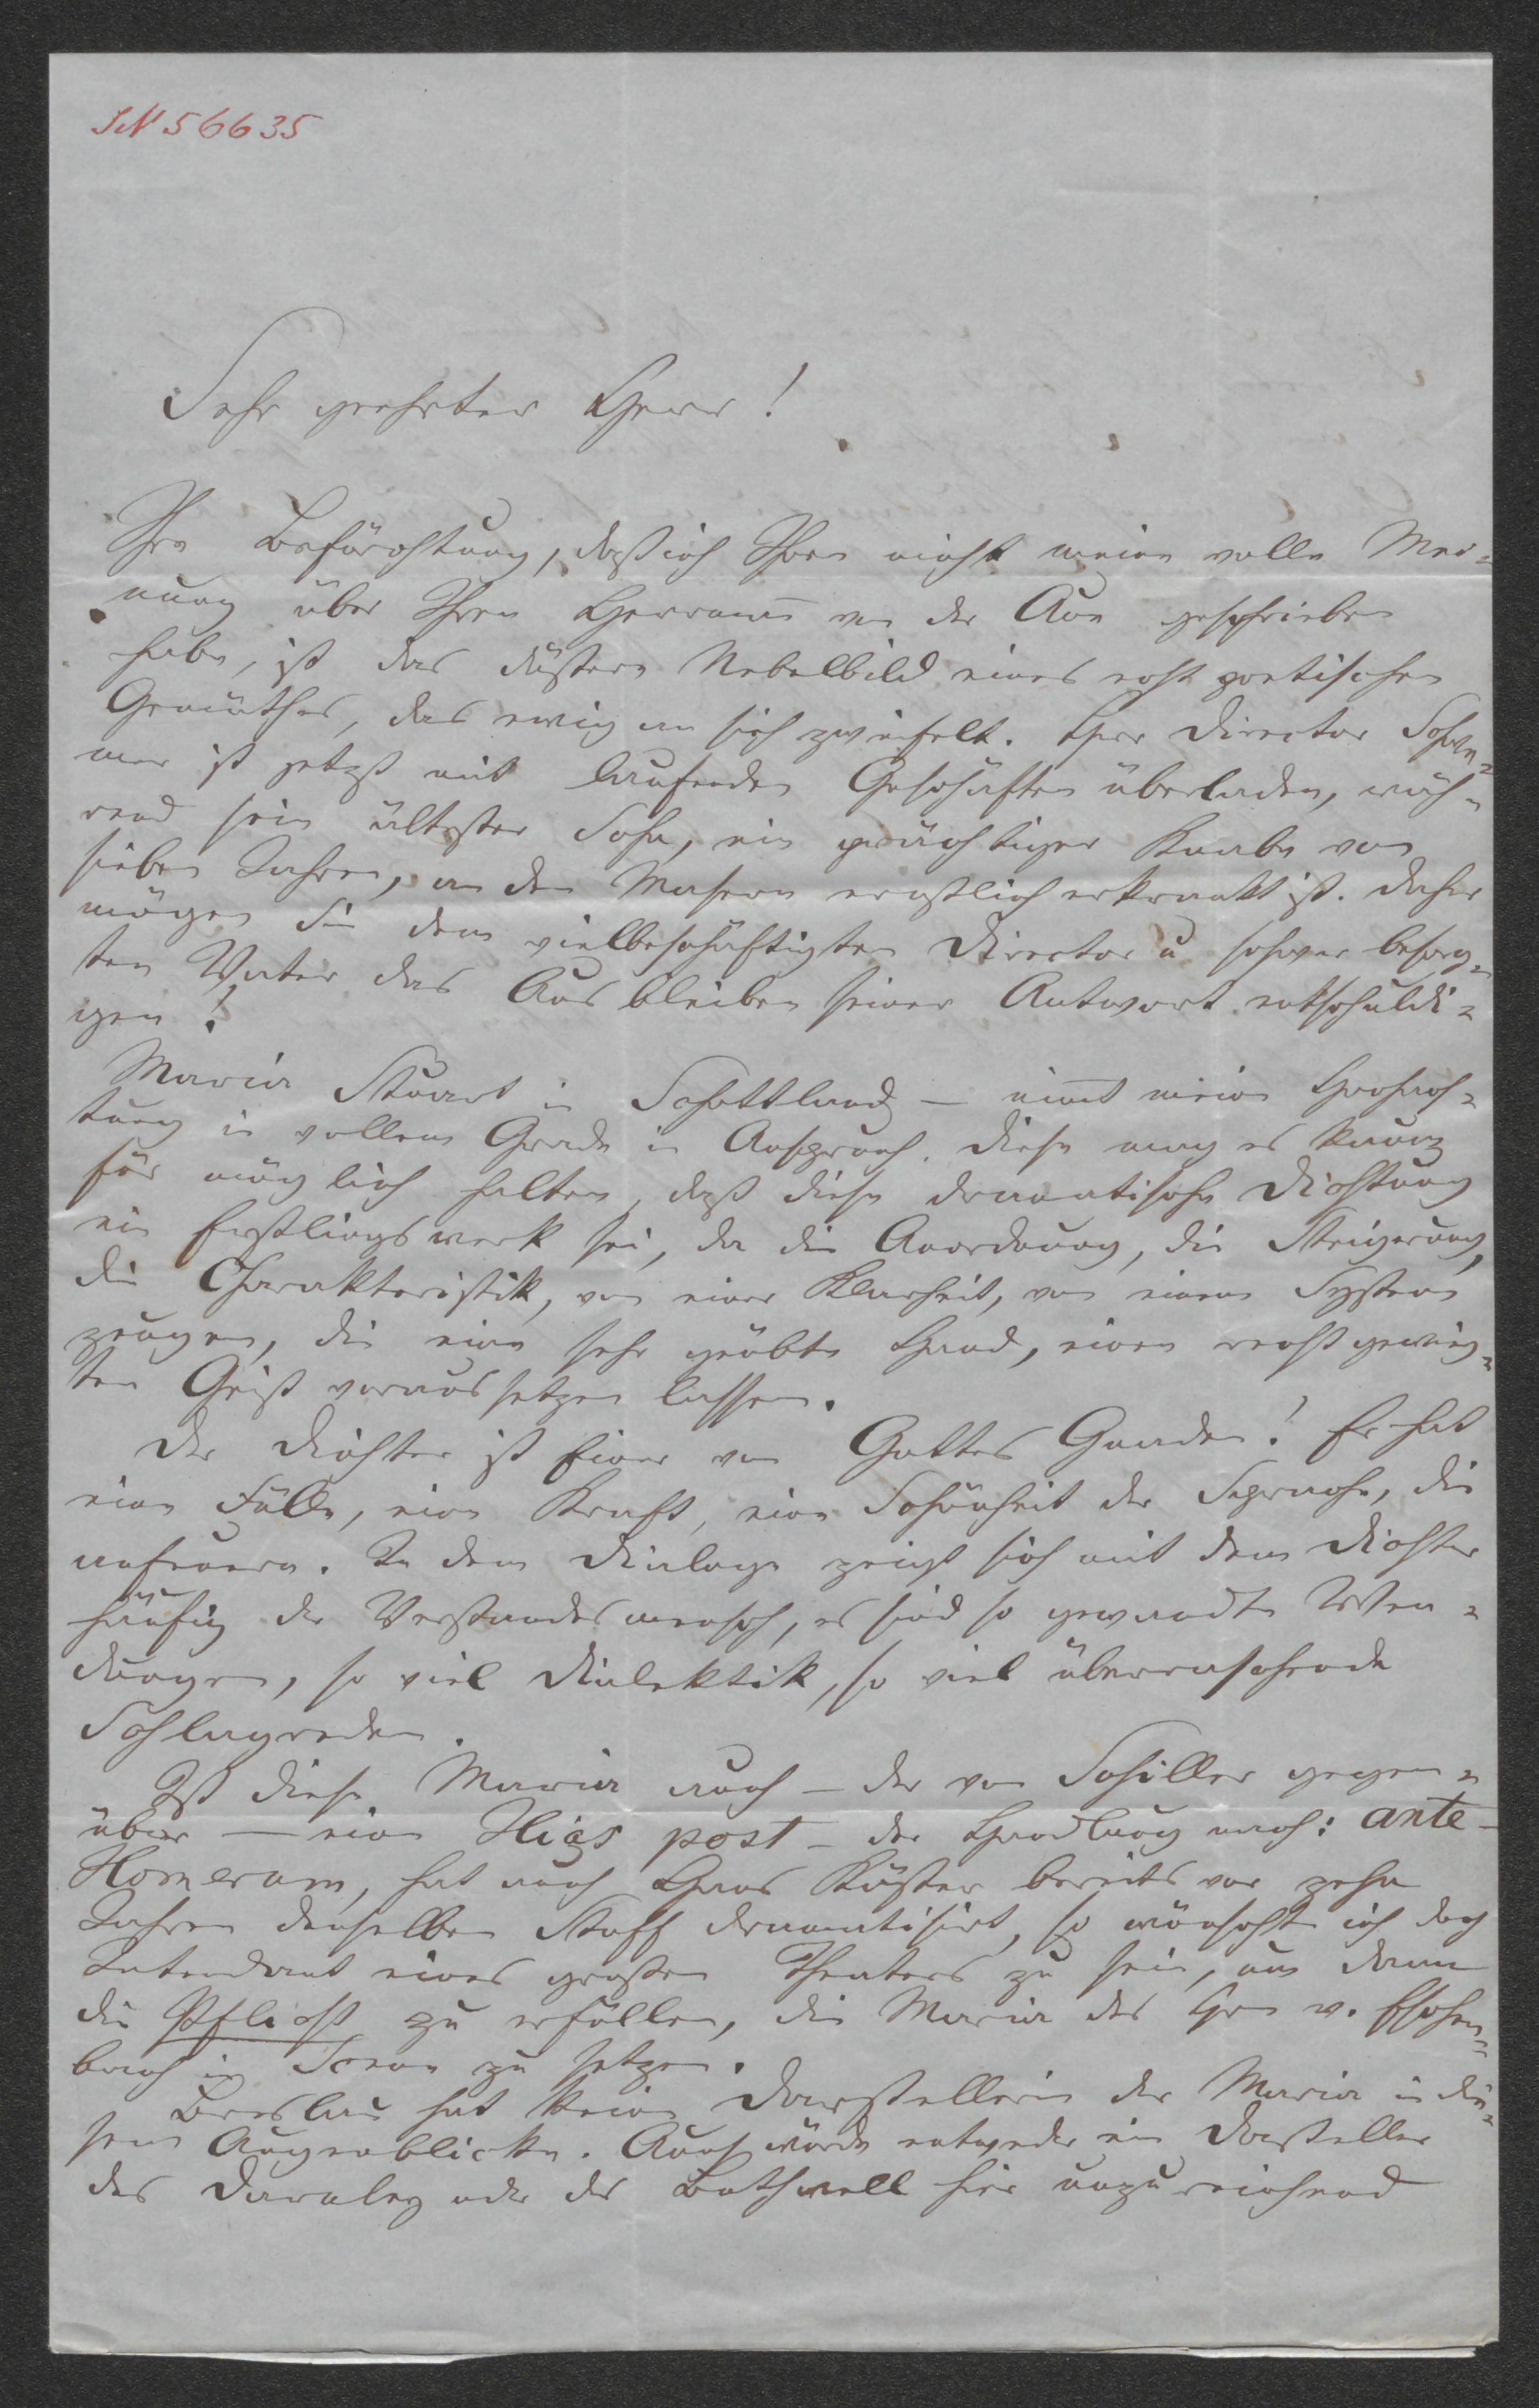 IN 56635
Sehr geehrter Herr!
Ihre Befürchtung, daß ich Ihnen nicht meine volle Mei-
nung über Ihren Hermann von der Aue geschrieben
habe, ist das düstere Nebelbild eines echt poetischen
Gemüthes, das ewig an sich zweifelt. Herr Director Schwe-
mer ist jetzt mit laufenden Geschäften überladen, wäh-
rend sein ältester Sohn, ein prächtiger Knabe von
sieben Jahren, an den Masern ernstlich erkrankt ist. Daher
mögen Sie dem vielbeschäftigten Director u schwer besorg-
ten Vater das Ausbleiben seiner Antwort entschuldi-
gen!
Maria Stuart in Schottland – nimt meine Hochach-
tung in vollem Grade in Anspruch. Diese mag es kaum
für möglich halten, daß diese dramatische Dichtung
ein Erstlingswerk sei, da die Anordnung, die Steigerung,
die Charakteristik, von einer Klarheit, von einem System
zeugen, die eine sehr geübte Hand, einen recht gewieg-
ten Geist voraussetzen lassen.
Der Dichter ist Einer von Gottes Gnaden! Er hat
eine Fülle, eine Kraft, eine Schönheit der Sprache, die
anfeuern. In dem Dialoge zeigt sich mit dem Dichter
häufig der Verstandesmensch, es sind so gewandte Wen-
dungen, so viel Dialektik, so viel überraschende
Schlagreden.
Ist diese Maria auch – der von Schiller gegen-
über – eine Ilias post – der Handlung nach: ante-
Homerum, hat auch Hans Köster bereits vor zehn
Jahren denselben Stoff dramatisirt, so wünschte ich doch
Intendant eines großen Theaters zu sein, um dann
die Pflicht zu erfüllen, die Maria des Hrn v. Eschen-
bach in Scene zu setzen.
Breslau hat keine Darstellerin der Maria in die-
sem Augenblicke. Auch würde entweder ein Darsteller
des Darnley oder des Bothwell hier unzureichend